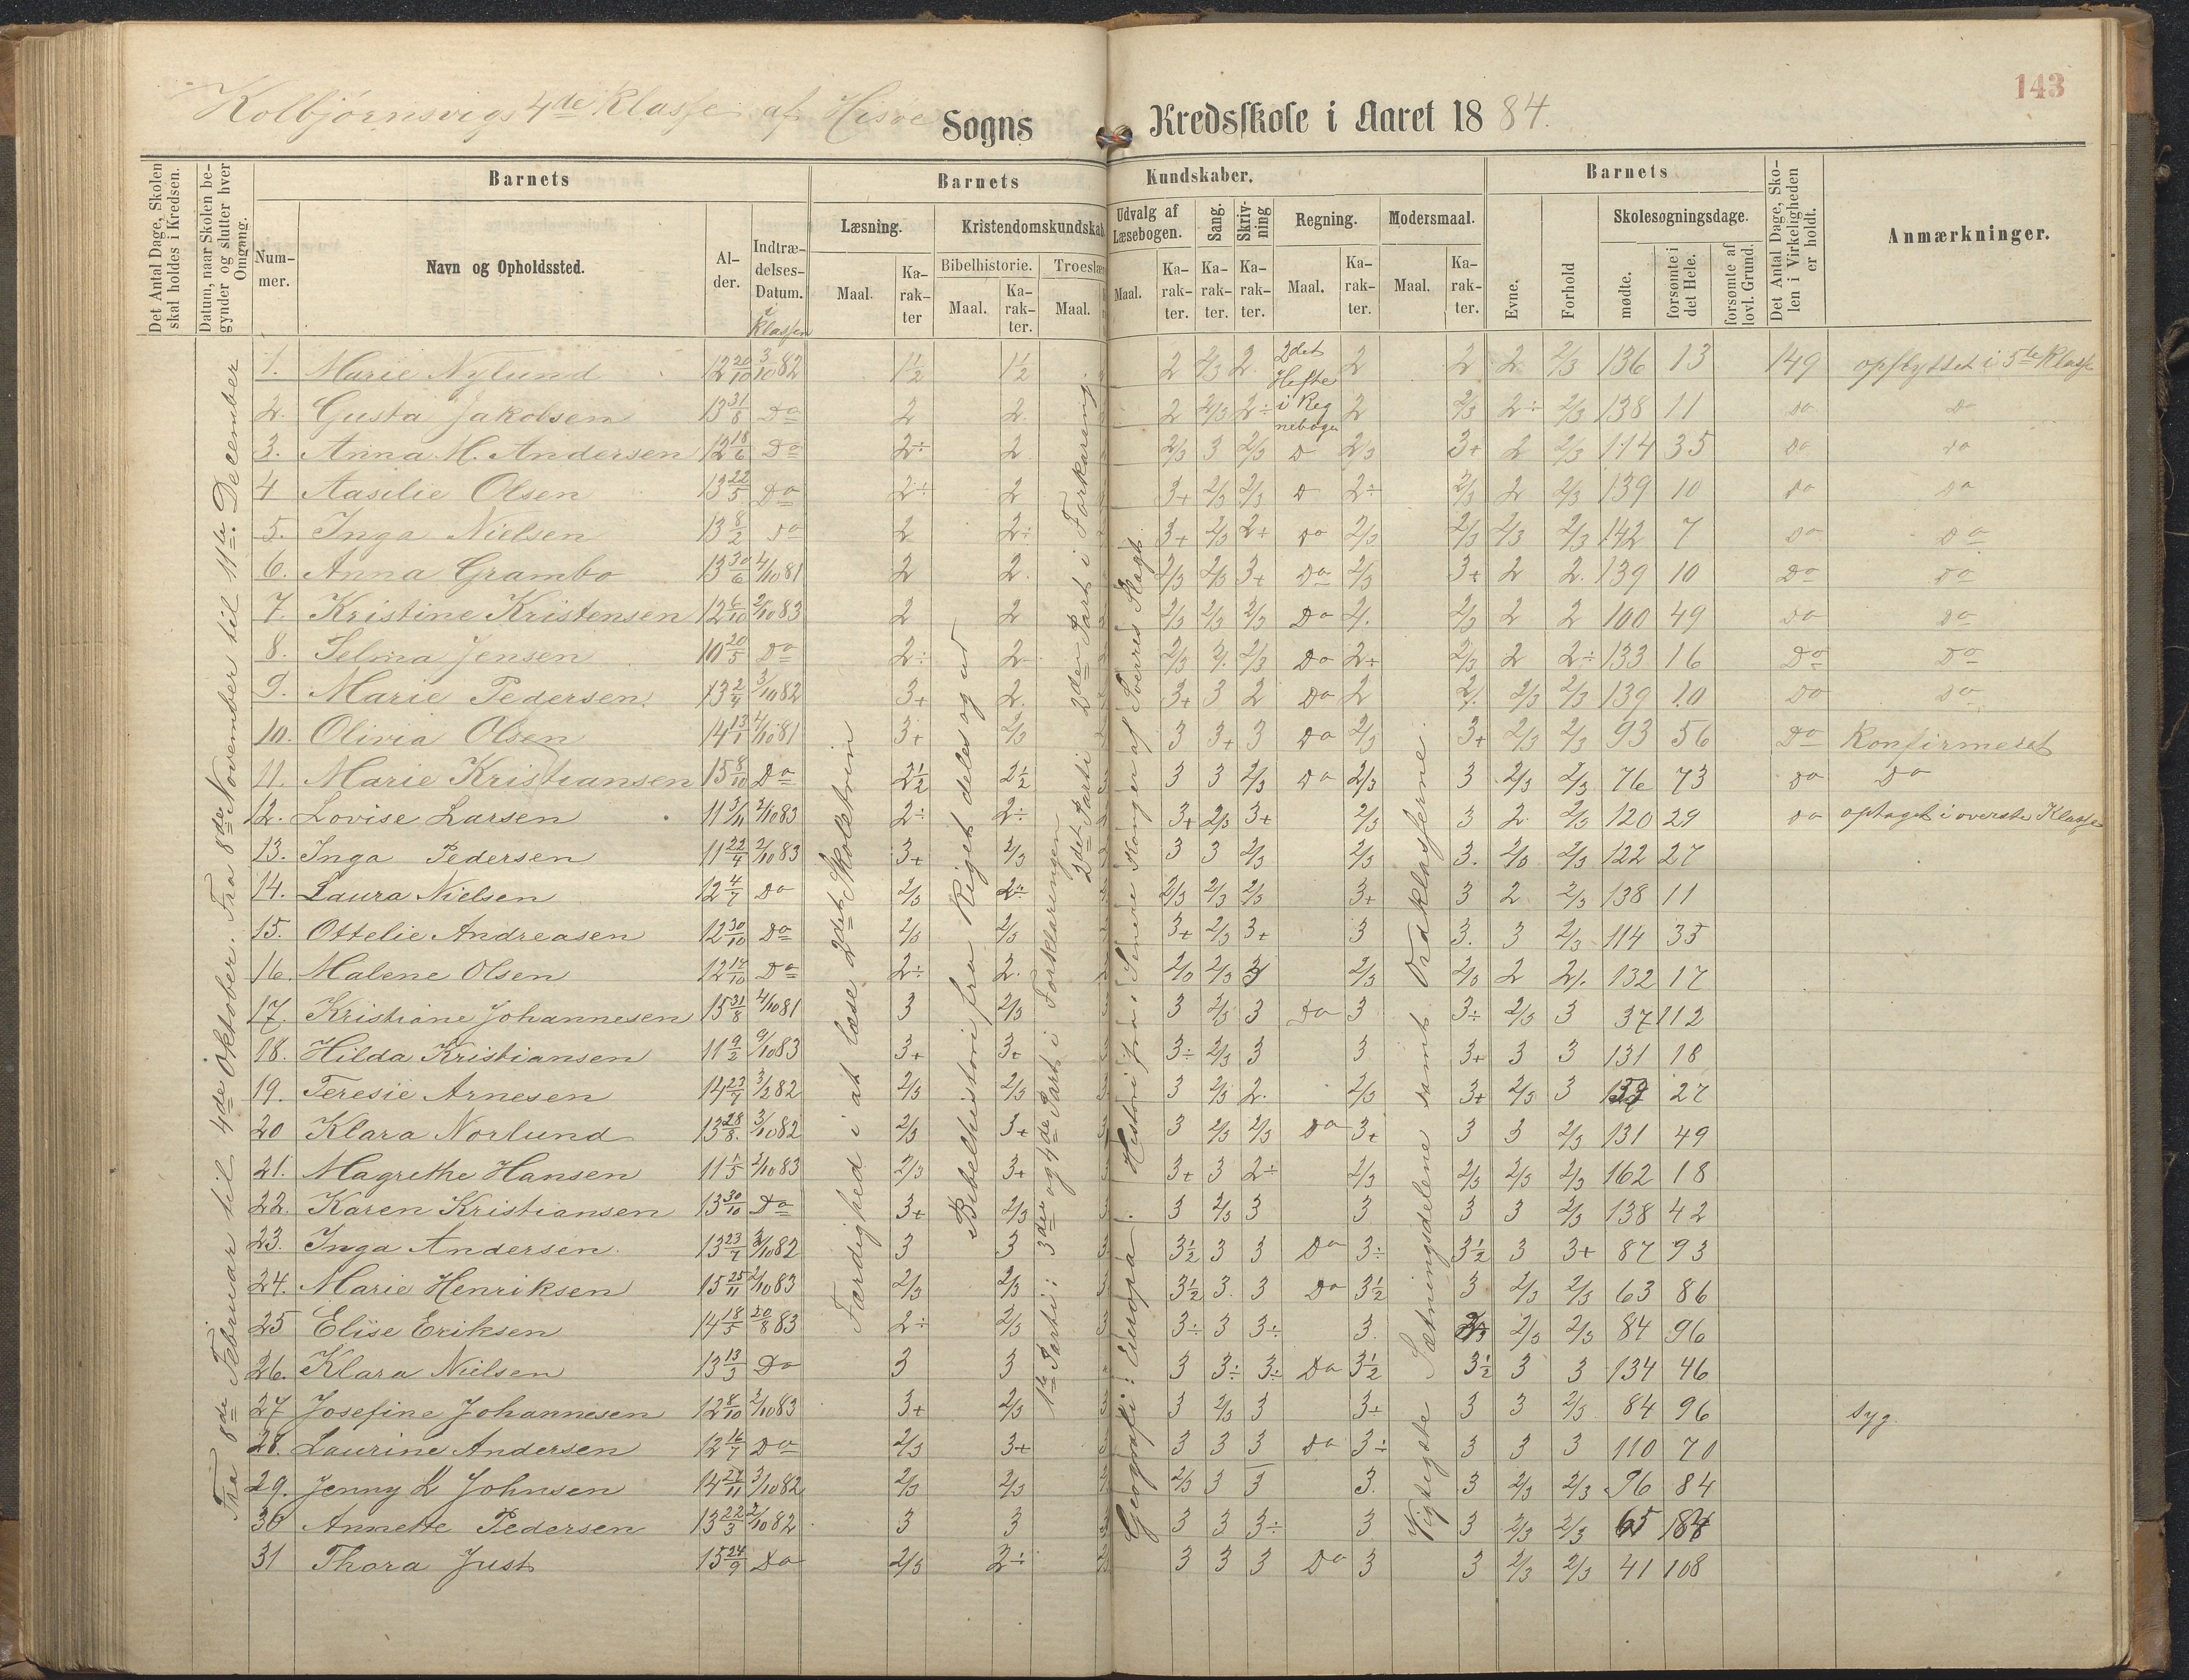 143
Kolbjørnsvigs 4de Klasse af Hisøe Sogns Kredsskole i Aaret 1884.
Det Antal Dage, Skolen skal holdes i Kredsen.
Datum, naar Skolen begynder og slutter hver Omgang.
Barnets
Nummer.
Navn og Opholdssted.
Alder.
Indtrædelses-Datum.
i Klassen
Barnets Kundskaber.
Læsning.
Maal.
Karakter
Kristendomskundskab
Bibelhistorie.
Maal.
Karakter.
Troeslær
Maal.
Udvalg af Læsebogen.
Maal.
Karakter.
Sang.
Karakter.
Skrivning
Karakter.
Regning.
Maal.
Karakter.
Modersmaal.
Maal.
Karakter.
Barnets
Evne.
Forhold
Skolesøgningsdage.
mødte.
forsømte i det Hele.
forsømte af lovl. Grund.
Det Antal Dage, Skolen i Virkeligheden er holdt.
Anmærkninger.
Fra 8de Februar til 4de Oktober. Fra 8de November til 11te December
Færdighed i at læse 2det Skoletrin
Bibelhistorie fra Riget deles og ud
1te Parti: 3die og 4de Part i Forklaringen
2det Parti 2den Part i Forklaring.
Geografi: Europa. Historie fra: Senere Konger af Sverres Slægt
Vigtigste Sætningsdelene samt Ordklasserne.
1. Marie Nylund 12 20/10 3/10 82 1½ 1½ 2 2/3 2. 2det Hefte i Regnebogen 2 2 2 2/3 136 13 149 opflyttet i 5te Klasse
2. Gusta Jakobsen 13 31/8 Do 2 2. 2 2/3 2÷ 2 2/3 2÷ 2/3 138 11 Do Do
3. Anna M. Andersen 12 18/6 Do 2÷ 2 2/3 3 2/3 D 2/3 3+ 2 2/3 114 35 Do Do
4 Aasilie Olsen 13 22/5 Do 2÷ 2 3+ 2/3 2/3 D 2÷ 2/3 2 2/3 139 10 Do Do
5. Inga Nielsen 13 8/2 Do 2 2÷ 3+ 2/3 2+ Do 2/3 2/3 2/3 2/3 142 7 Do Do
6. Anna Grambo 13 30/6 4/10 81 2 2. 2/3 2/3 3+ Do 2/3 3+ 2 2. 139 10 Do Do
7. Kristine Kristensen 12 6/10 2/10 83 2 2 2/3 2/3 2/3 Do 2/. 2/3 2 2 100 49 Do Do
8. Selma Jensen 10 20/5 Do 2÷ 2 2/3 2/. 2/3 Do 2÷ 2/3 2 2÷ 133 16 Do Do
9. Marie Pedersen. 13 2/4 3/10 82 3+ 2. 3+ 3 2 Do 2 2/. 2/3 2/3 139 10 Do Do
10. Olivia Olsen 14 13/1 4/10 81 3+ 2/3 3 3+ 3 Do 2/3 3+ 2/3 2/3 93 56 Do Konfirmeret
11. Marie Kristiansen 15 8/10 Do 2½ 2½ 3 3 2/3 Do 2/3 3 2/3 2/3 76 73 Do Do
12. Lovise Larsen 11 3/11 2/10 83 2÷ 2÷ 3+ 2/3 3+ 2/3 3 2. 2/3 120 29 Do optaget i øverste Klasse
13. Inga Pedersen 11 22/4 2/10 83 3+ 2/3 3 3 2/3 2/3 3. 2/3 2/3 122 27
14. Laura Nielsen 12 4/7 Do 2/3 2÷ 2/3 2/3 2/3 3+ 3 2 2/3 138 11
15. Ottelie Andreasen 12 30/10 Do 2/3 2/3 3+ 2/3 3+ 3 3. 3 2/3 114 35
16. Malene Olsen 12 14/10 Do 2÷ 2. 2/3 2/3 3 2/3 2/3 2 2/. 132 17
17. Kristiane Johannesen 15 31/8 4/10 81 3 2/3 3 2/3 3 Do 3 3÷ 2/3 3 37 112
18. Hilda Kristiansen 11 9/2 9/10 83 3+ 3+ 3÷ 2/3 3 3 3+ 3 3 131 18
19. Teresie Arnesen 14 23/7 3/2 82 2/3 2/3 3 2/3 2. 2/3 3+ 2/3 3 27
20 Klara Norlund 13 28/8 3/10 82 2/3 3+ 3 2/3 2/3 Do 3+ 3 3 2/3 131 49
21. Magrethe Hansen 11 1/5 2/10 83 2/3 3+ 3+ 3 2÷ 2/3 2/3 2/3 2/3 162 18
22. Karen Kristiansen 13 30/10 Do 3+ 2/3 3 2/3 3 3 3 3 2/3 138 42
23. Inga Andersen. 13 23/7 3/10 82 3 3 3½ 3 3 Do 3÷ 3½ 3 3+ 87 93
24. Marie Henriksen 15 25/11 2/10 83 2/3 2/3 3½ 3. 3 Do 3½ 3 2/3 2/3 63 86
25 Elise Eriksen 14 18/5 20/8 83 2÷ 2/3 3÷ 3 3÷ 3. 2/3 2/3 84 96
26. Klara Nielsen 13 13/3 Do 3 3 3 3÷ 3÷ Do 3½ 3½ 3 3 134 46
27 Josefine Johannesen 12 8/10 2/10 83 3+ 2/3 3 2/3 3 3+ 3 3 2/3 84 96 Syg.
28. Laurine Andersen 12 16/7 Do 2/3 3+ 3 3 3 Do 3÷ 3 3 3 110 70
29. Jenny L Johnsen 14 27/11 3/10 82 2/3 2/3 2/3 3 3 3. 3 2/3 2/3 96 84
30 Annette Pedersen 13 22/3 2/10 82 3 3 3 3 3÷ 3 3 2/3 2/3 65 184
31 Thora Just 15 24/9 Do 2/3 2÷ 3 3 3 Do 3 3 2/3 2/3 41 108